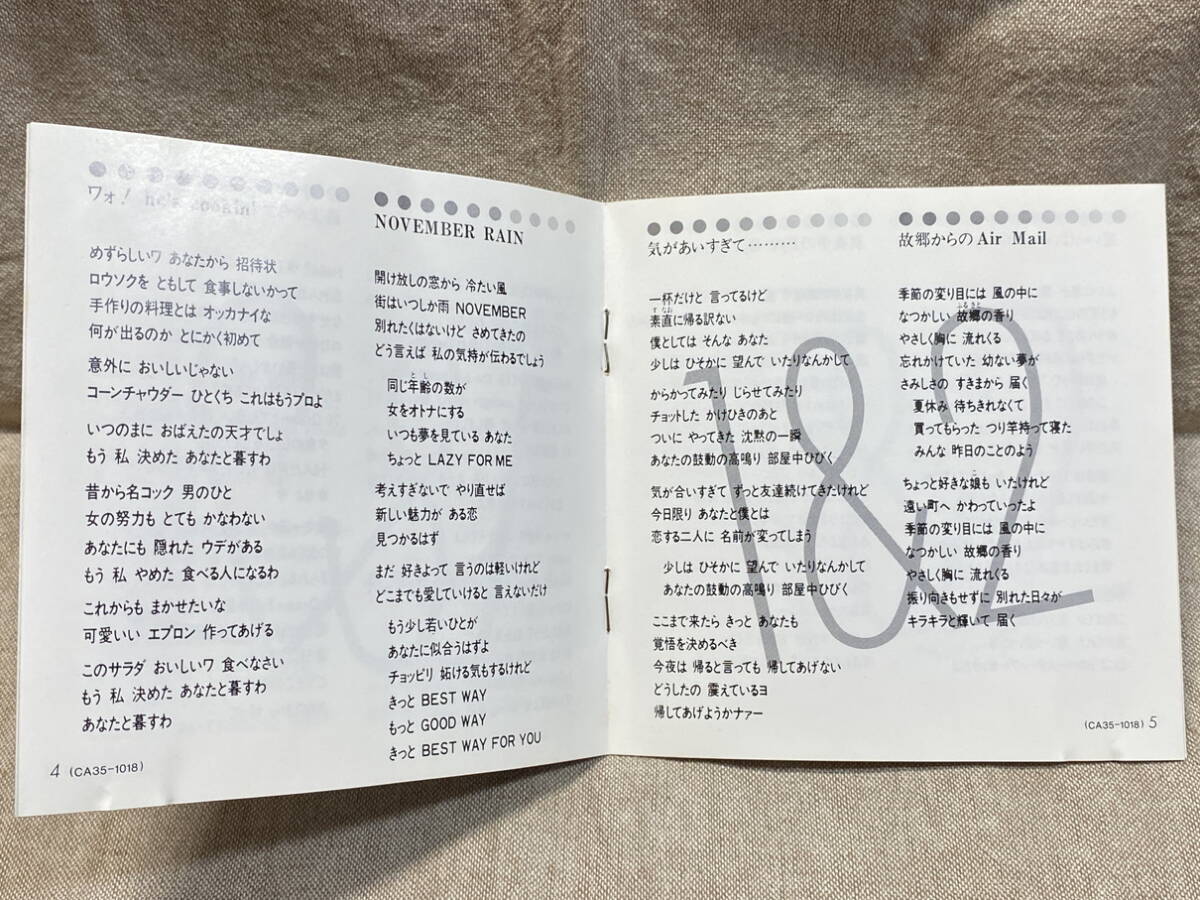 ワォ! he's cookin'
めずらしいワ あなたから 招待状
ロウソクを ともして 食事しないかって
手作りの料理とは オッカナイな
何が出るのか とにかく初めて
意外に おいしいじゃない
コーンチャウダー ひとくち これはもうプロよ
いつのまに おぼえたの天才でしょ
もう 私 決めた あなたと暮すわ
昔から名コック 男のひと
女の努力も とても かなわない
あなたにも 隠れた ウデがある
もう 私 やめた 食べる人になるわ
これからも まかせたいな
可愛いい エプロン 作ってあげる
このサラダ おいしいワ 食べなさい
もう 私 決めた あなたと暮すわ
あなたと暮すわ
4 (CA35-1018)
NOVEMBER RAIN
開け放しの窓から 冷たい風
街はいつしか雨 NOVEMBER
別れたくはないけど さめてきたの
どう言えば 私の気持が伝わるでしょう
とし
同じ年齢の数が
女をオトナにする
いつも夢を見ている あなた
ちょっと LAZY FOR ME
考えすぎないで やり直せば
新しい魅力が ある恋
見つかるはず
まだ 好きよって 言うのは軽いけれど
どこまでも愛していけると 言えないだけ
もう少し若いひとが
あなたに似合うはずよ
チョッピリ 妬ける気もするけれど
きっと BEST WAY
もっと GOOD WAY
きっと BEST WAY FOR YOU
気があいすぎて………
一杯だけと 言ってるけど
すなお
素直に帰る訳ない
僕としては そんな あなた
少しは ひそかに 望んで いたりなんかして
からかってみたり じらせてみたり
チョットした かけひきのあと
ついに やってきた 沈黙の一瞬
あなたの鼓動の高鳴り 部屋中ひびく
気が合いすぎて ずっと友達続けてきたけれど
今日限り あなたと僕とは
恋する二人に 名前が変ってしまう
少しは ひそかに 望んで いたりなんかして
あなたの鼓動の高鳴り 部屋中ひびく
ここまで来たら きっと あなたも
覚悟を決めるべき
今夜は 帰ると言っても 帰してあげない
どうしたの 震えているヨ
帰してあげようかナァー
故郷からの Air Mail
季節の変り目には 風の中に
ふるさと
なつかしい 故郷の香り
やさしく胸に 流れくる
忘れかけていた 幼ない夢が
さみしさの すきまから 届く
夏休み 待ちきれなくて
買ってもらった つり竿持って寝た
みんな 昨日のことのよう
こ
ちょっと好きな娘も いたけれど
遠い町へ かわっていったよ
季節の変り目には 風の中に
なつかしい 故郷の香り
やさしく胸に 流れくる
振り向きもせずに 別れた日々が
キラキラと輝いて 届く
1&2
(CA35-1018) 5